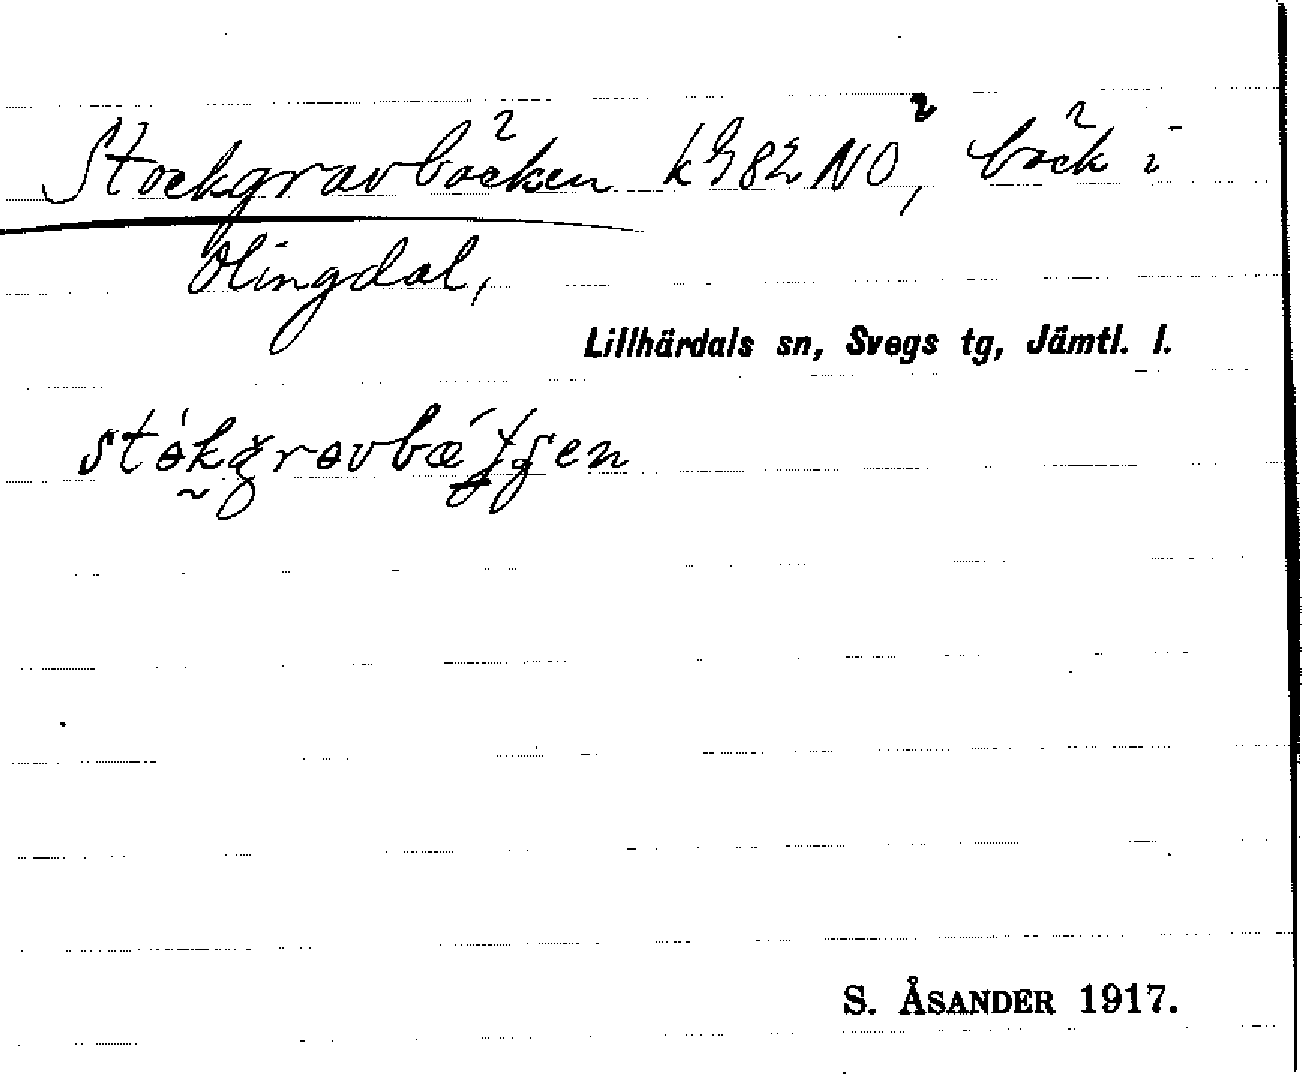 Stockgravbäcken k982 NO², bäck i
Olingdal,
Lillhärdals sn, Svegs tg, Jämtl. l.
S. ÅSANDER 1917.